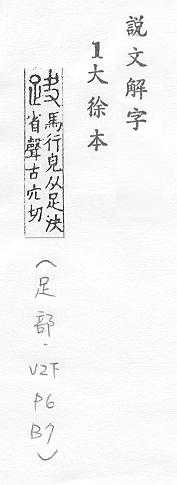 説文解字
1大徐本
趹馬行皃从足決
省聲古穴切
(足部.V2下P6B7)